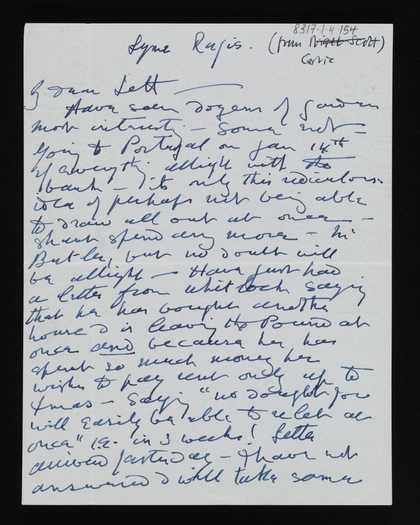 8317.1.4/54
Lyme Regis. (from Scott)
My dear Lett
Have seen dozens of gardens
most interesting – Some not –
Going to Portugal on Jan 14th
if everything allright with the
bank – It's only this ridiculous
idea of perhaps not being able
to draw all out at once –
shant spend any more – in
but no doubt will
be allright – Have just had
a letter from Whitlock saying
that he has bought another
house & is leaving the Pound at
once and because he has
spent so much money he
wishes to pay rent only up to
Xmas – Saying "no doubt you
will easily be able to relet at
once" ie. in 3 weeks! Letter
arrived yesterday – I have not
answered & will take some